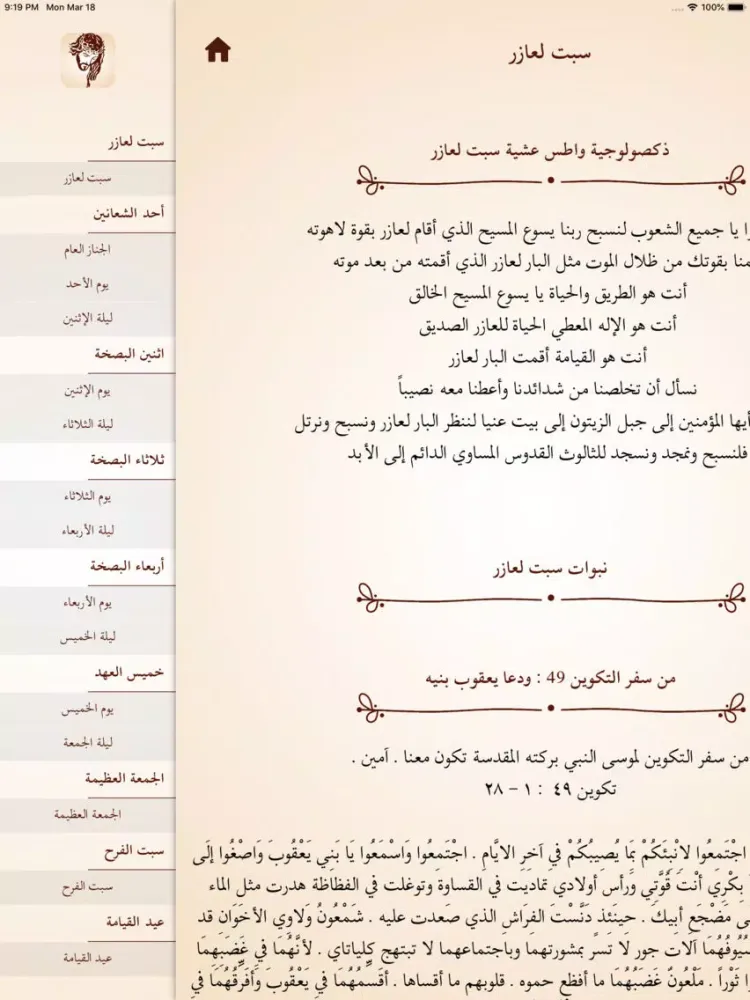 9:19 PM Mon Mar 18
100%
سبت لعازر
سبت لعازر
أحد الشعانين
الجناز العام
يوم الأحد
ليلة الإثنين
اثنين البصخة
يوم الإثنين
ليلة الثلاثاء
ثلاثاء البصخة
يوم الثلاثاء
ليلة الأربعاء
أربعاء البصخة
يوم الأربعاء
ليلة الخميس
خميس العهد
يوم الخميس
ليلة الجمعة
الجمعة العظيمة
الجمعة العظيمة
سبت الفرح
سبت الفرح
عيد القيامة
عيد القيامة
سبت لعازر
ذكصولوجية واطس عشية سبت لعازر
يا جميع الشعوب لنسبح ربنا يسوع المسيح الذي أقام لعازر بقوة لاهوته
بقوتك من ظلال الموت مثل البار لعازر الذي أقمته من بعد موته
أنت هو الطريق والحياة يا يسوع المسيح الخالق
أنت هو الإله المعطي الحياة للعازر الصديق
أنت هو القيامة أقمت البار لعازر
نسأل أن تخلصنا من شدائدنا وأعطنا معه نصيباً
أيها المؤمنين إلى جبل الزيتون إلى بيت عنيا لننظر البار لعازر ونسبح ونرتل
فلنسبح ونمجد ونسجد للثالوث القدوس المساوي الدائم إلى الأبد
نبوات سبت لعازر
من سفر التكوين 49 : ودعا يعقوب بنيه
من سفر التكوين لموسى النبي بركته المقدسة تكون معنا . آمين .
تكوين ٤٩ : ١ – ٢٨
اجْتَمِعُوا لانْبِئَكُمْ بِمَا يُصِيبُكُمْ فِي آخِرِ الايَّامِ . اجْتَمِعُوا وَاسْمَعُوا يَا بَنِي يَعْقُوبَ وَاصْغُوا إلَى
بِكْرِي أنْتَ قُوَّتِي وَرأس أولادي تماديت في القساوة وتوغلت في الفظاظة هدرت مثل الماء
مَضْجَعِ أبِيكَ . حِينَئِذٍ دَنَّسْتَ الفِرَاشَ الذي صَعدت عليه . شَمْعُونُ وَلاوِي الأخَوَانِ قد
سُيُوفُهُمَا آلات جور لا تسرّ بمشورتهما وباجتماعهما لا تبتهج كِلياتاي . لأنَّهُمَا فِي غَضَبِهِمَا
ثَوْراً . مَلْعُونٌ غَضَبُهُمَا ما أفظع حموه . قلوبهم ما أقساها . أقسمُهُمَا فِي يَعْقُوبَ وَأفَرِّقُهُمَا فِي